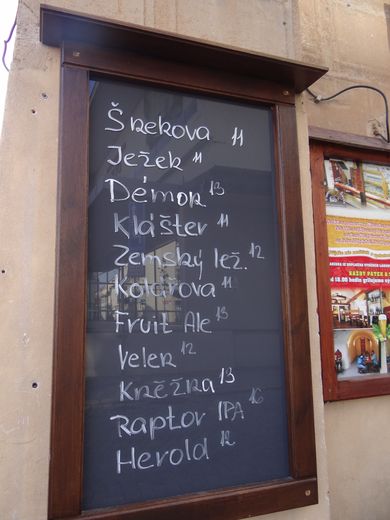 Šrekova 11
Ježek 11
Démon 13
Klášter 11
Zemský lež. 12
Kolářova 11
Fruit Ale 13
Velen 12
Kněžna 13
Raptor IPA 16
Herold 12
KAŽDÝ PÁTEK A